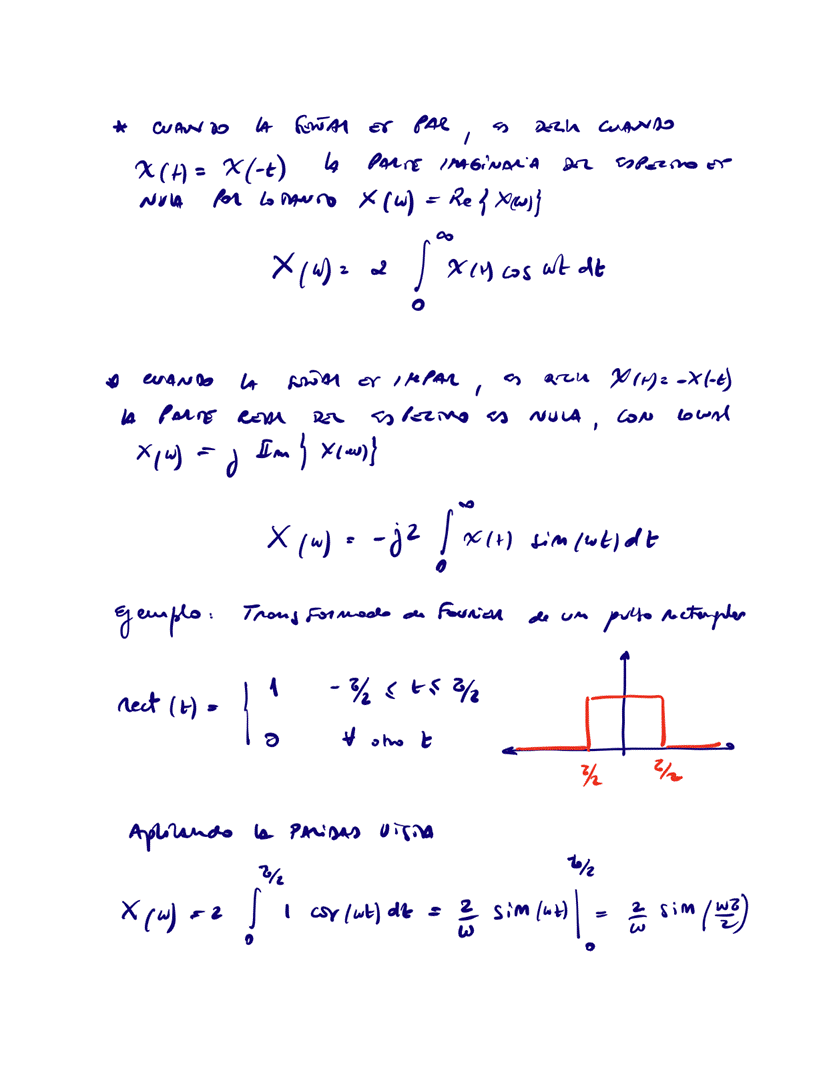 * CUANDO LA SEÑAL ES PAR, ES DECIR CUANDO
x(t) = x(-t) LA PARTE IMAGINARIA DEL ESPECTRO ES
NULA POR LO TANTO X(ω) = Re{X(ω)}
X(ω) = 2 ∫₀^∞ x(t) cos ωt dt
* CUANDO LA SEÑAL ES IMPAR, ES DECIR x(t) = -x(-t)
LA PARTE REAL DEL ESPECTRO ES NULA, CON LO CUAL
X(ω) = j Im{X(ω)}
X(ω) = -j2 ∫₀^∞ x(t) sin(ωt) dt
Ejemplo: Transformada de Fourier de un pulso rectangular
rect(t) = { 1 -τ/2 ≤ t ≤ τ/2
0 ∀ otro t
τ/2 τ/2
Aplicando la PARIDAD VISTA
X(ω) = 2 ∫₀^{τ/2} 1 cos(ωt) dt = 2/ω sin(ωt) |₀^{τ/2} = 2/ω sin(ωτ/2)